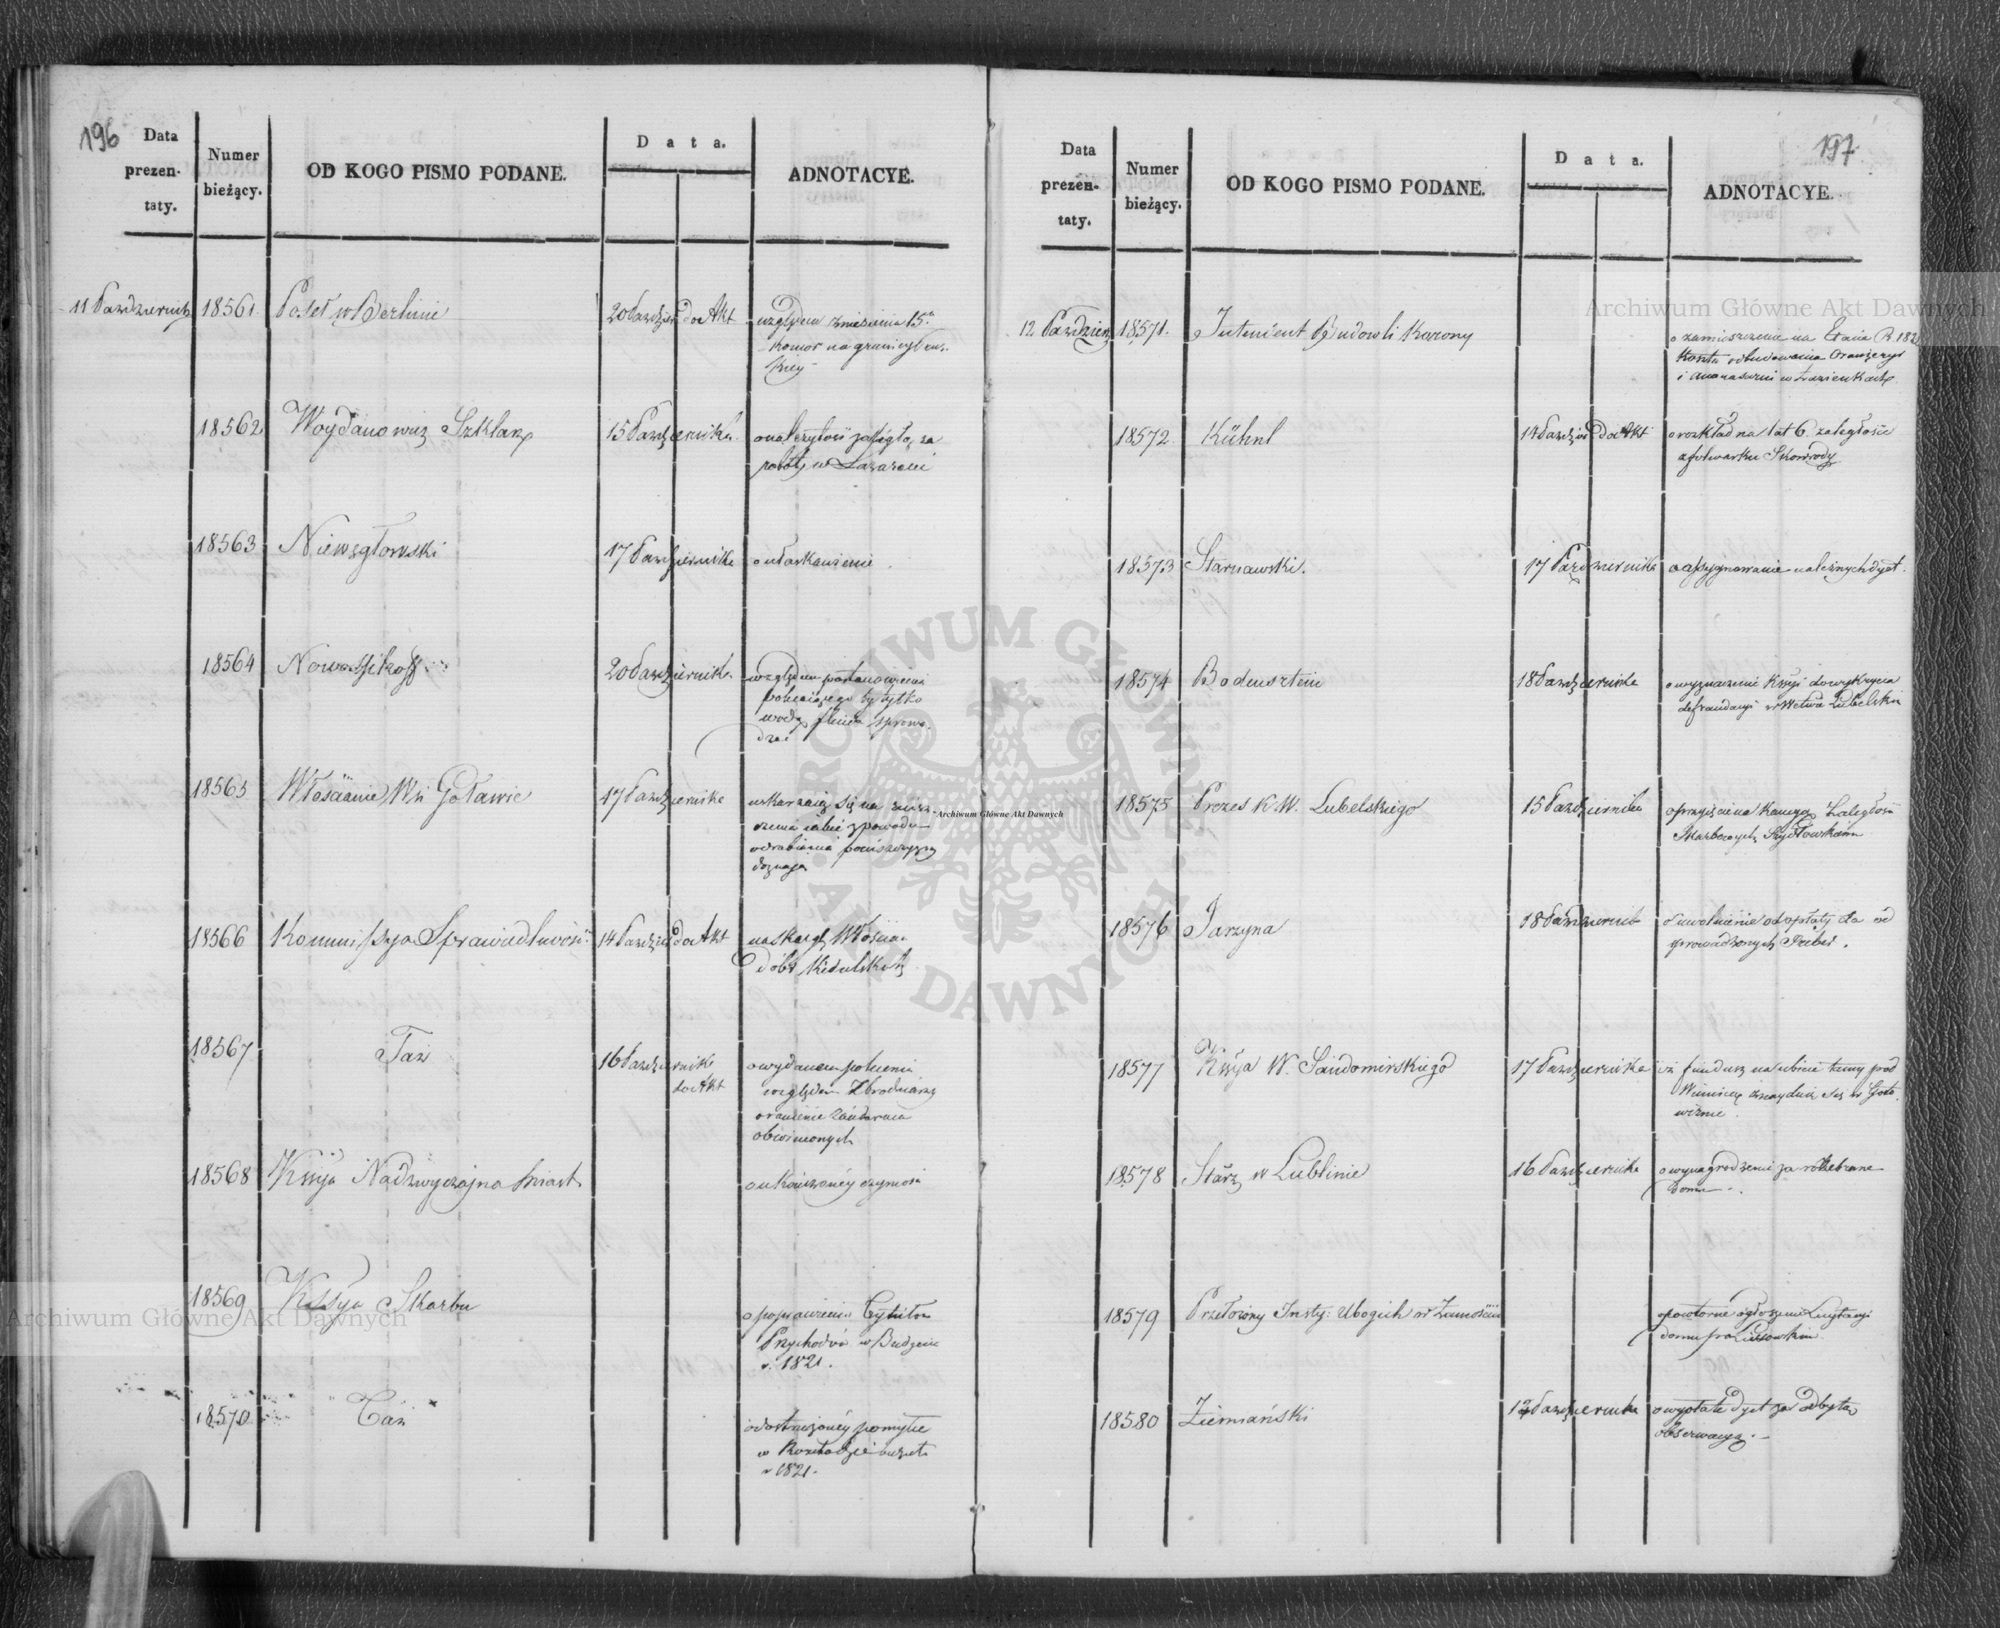 196
Data prezen- taty.
Numer bieżący.
OD KOGO PISMO PODANE.
Data.
ADNOTACYE.
11 Październik 18561 Poseł w Berlinie 20 Paździer do Akt względem zniesienia 15tu
komor na granicy
18562 Woydanowicz Szklarz 15 Października o należytość zaległą za
robotę w Lazarecie
18563 Niewęgłowski 17 Października o ułaskawienie
18564 Nowossilcoff 20 Października względem postanowienia
polecającego by tylko
wodą
18565 Włościanie Wsi Goławic 17 Października uskarżaią się na
z powodu
odrabiania pańszczyzny
doznają
18566 Kommissya Sprawiedliwości 14 Paździer do Akt na skargę Włościan
dóbr Kidulskich
18567 Taż 16 Października
do Akt
o wydaniu polecenia
względem Zbrodniarzy
o ranienie Żandarma
obwinionych
18568 Kssyja Nadzwyczajna Miast o ukończonéy czynności
18569 Kssya Skarbu o poprawieniu Tytułu
Przychodu w Budżecie
r. 1821.
18570 Taż o dostrzeżonéy pomyłce
w Rozkładzie
r 1821.
197
Data prezen- taty.
Numer bieżący.
OD KOGO PISMO PODANE.
Data.
ADNOTACYE.
12 Paździer 18571. Intendent Budowli Korony o zamieszczenie na Etacie R. 182
Kosztu odbudowania Oranżeryi
i Ananasarni w Łazienkach
18572 Kühnl 14 Paździer do Akt o rozkład na lat 6 zaległości
z folwarku Skowrody
18573 Starnawski. 17 Października o assygnowanie należnych dyet.
18574 Bodensztein 18 Października o wyznaczenie Kssyi do wykrycia
defraudacyi w Wctwie Lubelskim
18575 Prezes K W. Lubelskiego 15 Października o przyięcie na Kaucyą Zaległości
Skarbowych
18576 Jarzyna 18 Październik o uwolnienie od opłaty cła od
sprowadzonych
18577 Kssya W. Sandomirskiego 17 Października iż fundusz na ubicie tamy pod
Winiarą znayduie się w Goto
wiznie
18578 Starz w Lublinie 16 Października o wynagrodzenie za rozebranie
Domu.
18579 Przełożony Insty: Ubogich w Zamościu o powtorne ogłoszenie Licytacyi
domu po
18580 Ziemiański 12 Października o wypłatę dyet za odbytą
obserwacyą. –
Archiwum Główne Akt Dawnych
Archiwum Główne Akt Dawnych
Archiwum Główne Akt Dawnych
ARCHIWUM GŁÓWNE AKT DAWNYCH